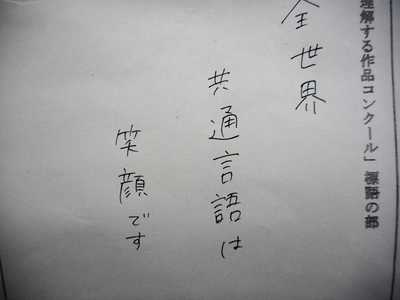 理解する作品コンクール」標語の部
全世界
共通言語は
笑顔です